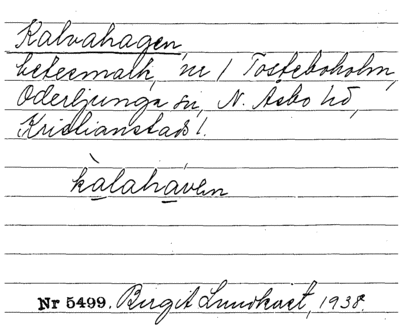 Kalvahagen,
betesmark, nr 1 Tosteboholm,
Oderljunga sn, N. Åsbo hd,
Kristianstads l.
kàlaháven
Nr 5499. Birgit Lundkvist, 1938.